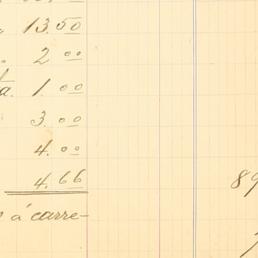 13.50
2.00
a. 1.00
3.00
4.00
4.66
89
á carre-